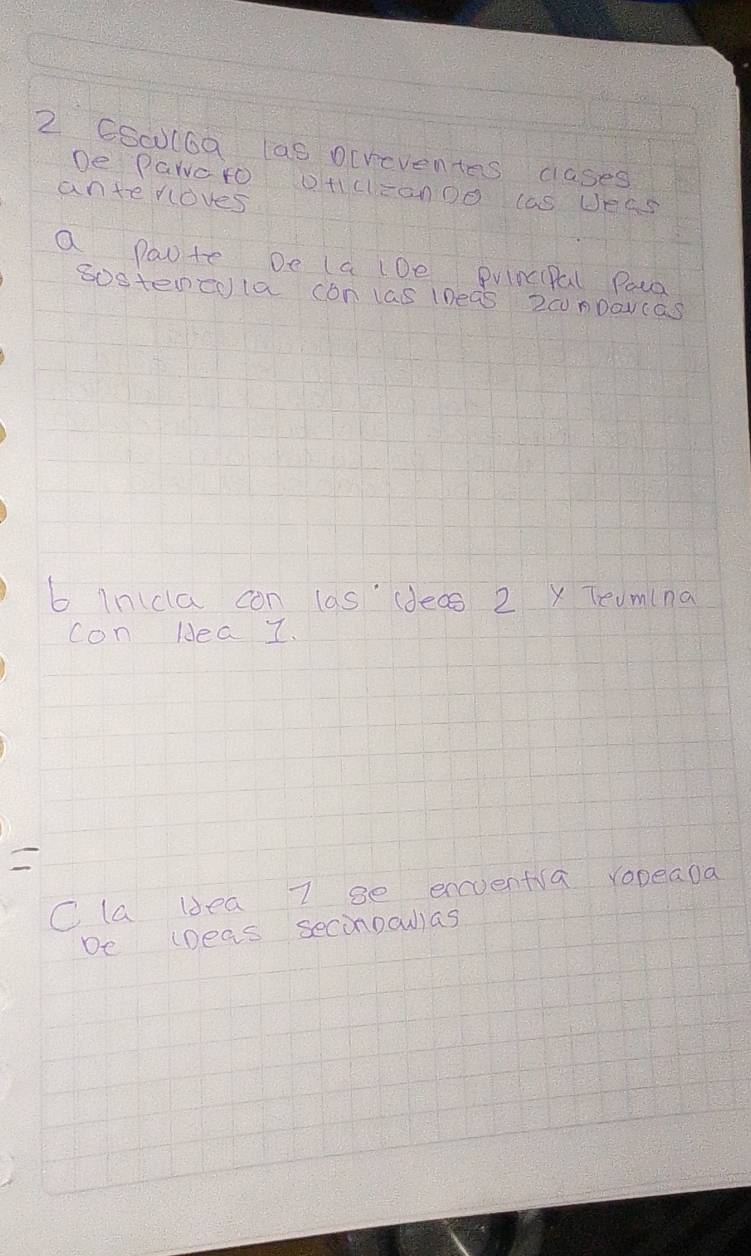 2 Escriba las diferentes clases
De Parrafo utilizando las ideas
anteriores
a Parte De la iDe principal Para
sostenerla con las iDeas 2cunDarias
b Inicia con las ideas 2 y Termina
con idea 1.
C la idea 1 se encuentra roDeaDa
De iDeas secunDarias